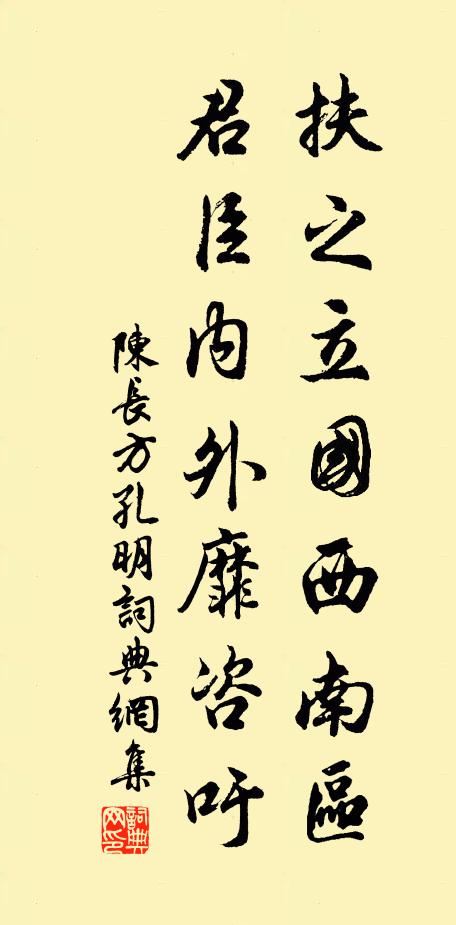 扶之立國西南區
君臣內外靡咨吁
陳長方孔明詞典網集
詞典网印